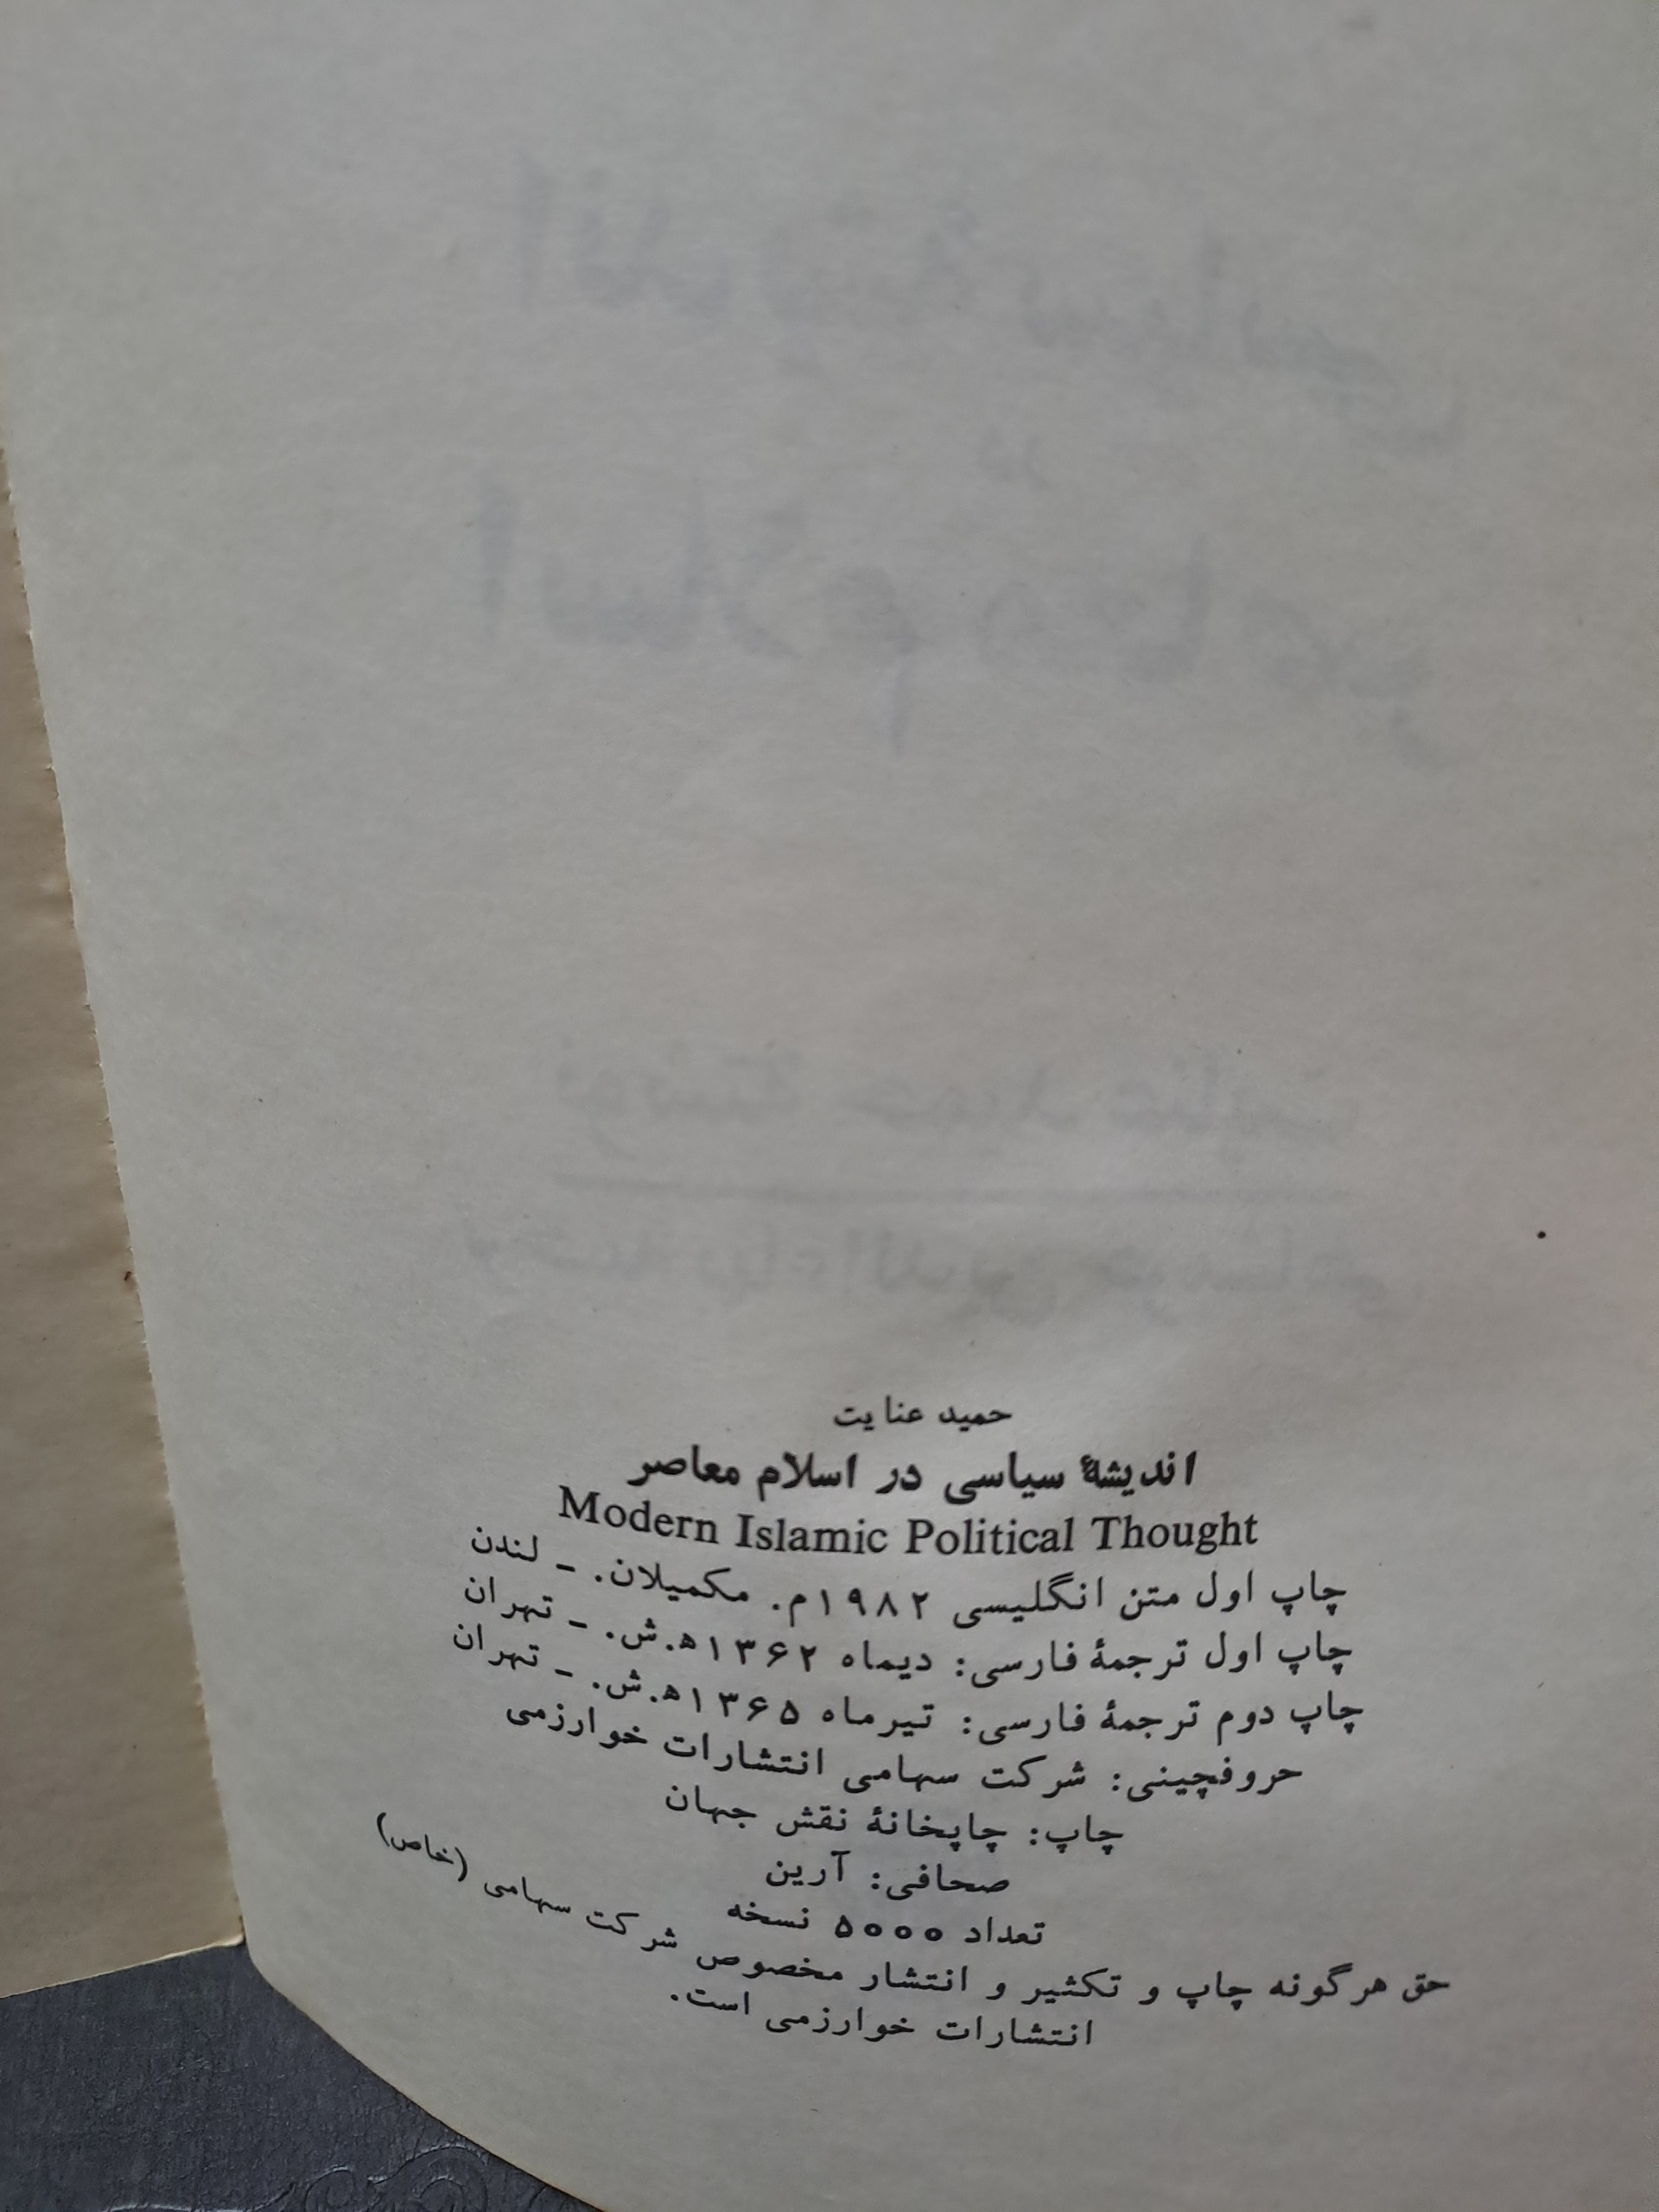 حمید عنایت
اندیشهٔ سیاسی در اسلام معاصر
Modern Islamic Political Thought
چاپ اول متن انگلیسی ۱۹۸۲م. مکمیلان. ـ لندن
چاپ اول ترجمهٔ فارسی: دیماه ۱۳۶۲ه‍.ش. ـ تهران
چاپ دوم ترجمهٔ فارسی: تیرماه ۱۳۶۵ه‍.ش. ـ تهران
حروفچینی: شرکت سهامی انتشارات خوارزمی
چاپ: چاپخانهٔ نقش جهان
صحافی: آرین
تعداد ۵۰۰۰ نسخه
حق هرگونه چاپ و تکثیر و انتشار مخصوص شرکت سهامی (خاص)
انتشارات خوارزمی است.